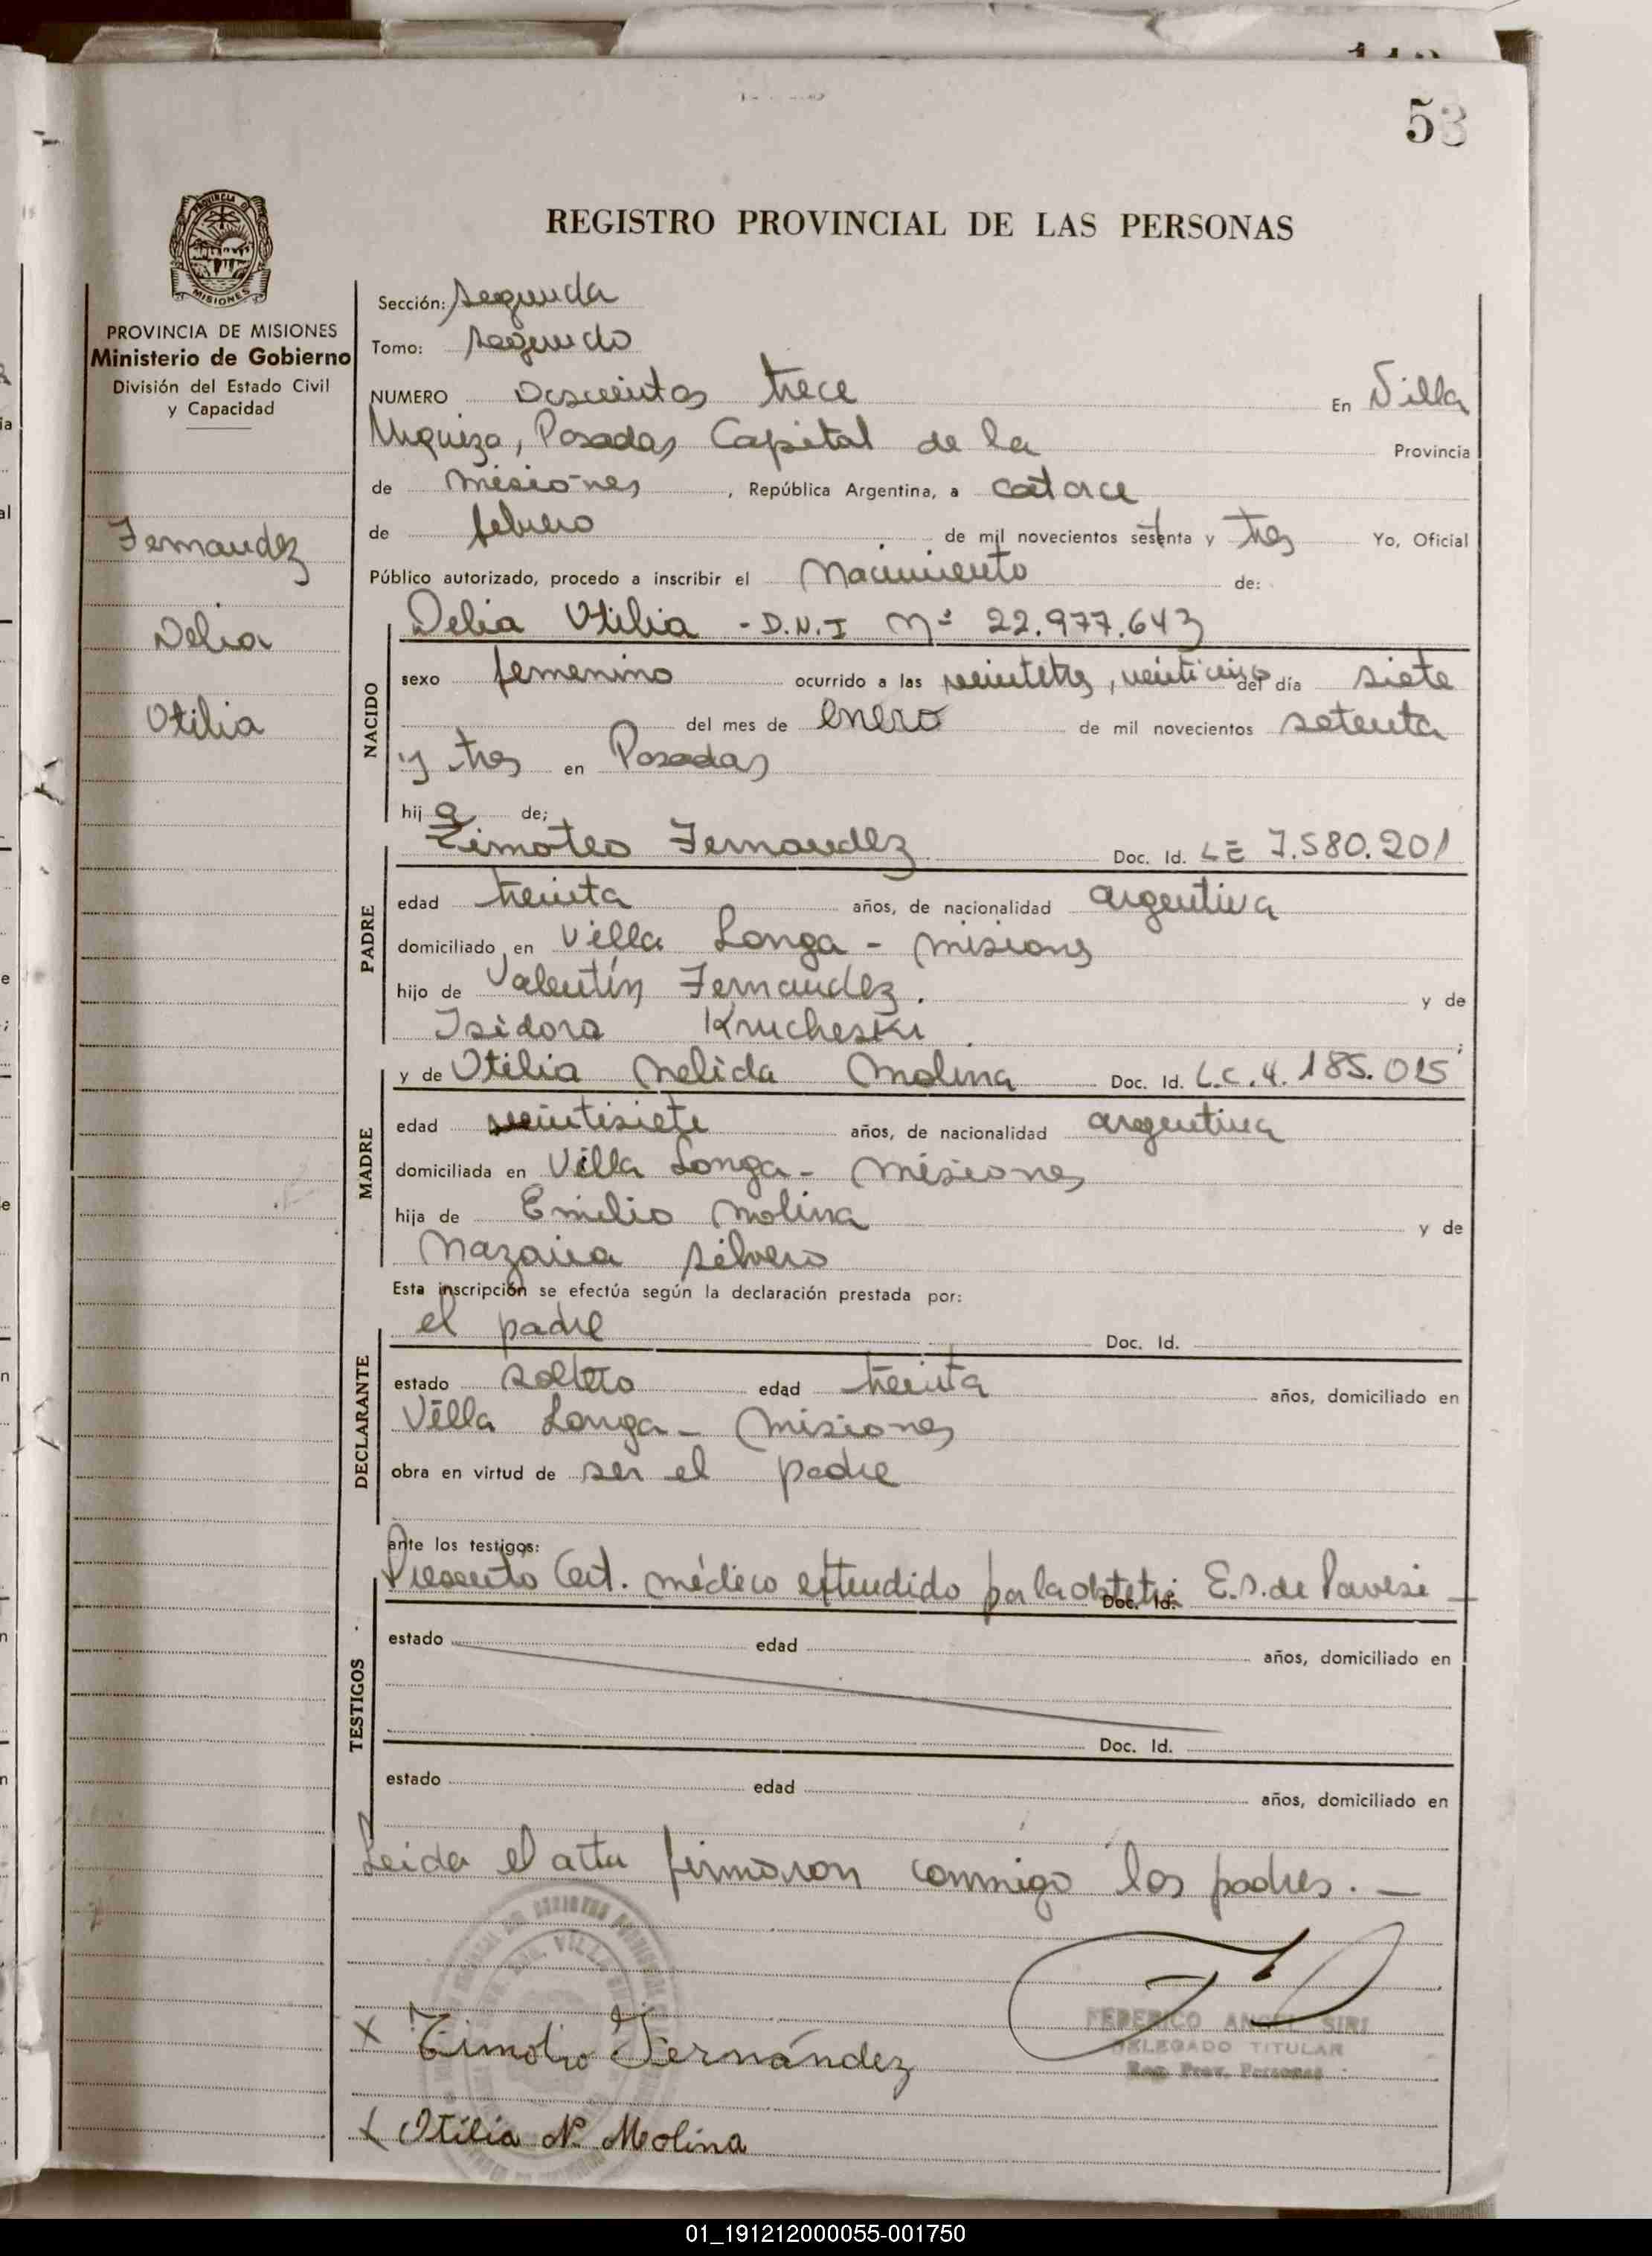 53
REGISTRO PROVINCIAL DE LAS PERSONAS
MISIONES
PROVINCIA DE MISIONES
Ministerio de Gobierno
División del Estado Civil
y Capacidad
Fernandez
Delia
Otilia
Sección: segunda
Tomo: segundo
NUMERO Doscientos trece En Villa
Urquiza, Posadas Capital de la Provincia
de misiones, República Argentina, a catorce
de febrero de mil novecientos setenta y tres Yo, Oficial
Público autorizado, procedo a inscribir el Nacimiento de:
NACIDO
Delia Otilia - D.N.I Nº 22.977.643
sexo femenino ocurrido a las veintitres, veinticinco del día siete
del mes de enero de mil novecientos setenta
y tres en Posadas
hija de;
PADRE
Timoteo Fernandez Doc. Id. LE 7.580.201
edad treinta años, de nacionalidad argentina
domiciliado en Villa Longa - misiones
hijo de Valentín Fernandez. y de
Isidora Krucheski ;
MADRE
y de Otilia Nelida Molina Doc. Id. L.C. 4.185.015
edad veintisiete años, de nacionalidad argentina
domiciliada en Villa Longa - misiones
hija de Emilio Molina y de
Nazaria Silvero
Esta inscripción se efectúa según la declaración prestada por:
DECLARANTE
el padre Doc. Id.
estado soltero edad treinta años, domiciliado en
Villa Longa - Misiones
obra en virtud de ser el padre
ante los testigos:
TESTIGOS
Presento Cert. médico extendido por la obstetri Doc. Id. E.S. de Pavesi
estado edad años, domiciliado en
Doc. Id.
estado edad años, domiciliado en
Leida el acta firmaron conmigo los padres. —
FEDERICO ANGEL SIRI
DELEGADO TITULAR
Reg. Prov. Personas
x Timoteo Fernández
x Otilia N. Molina
01_191212000055-001750